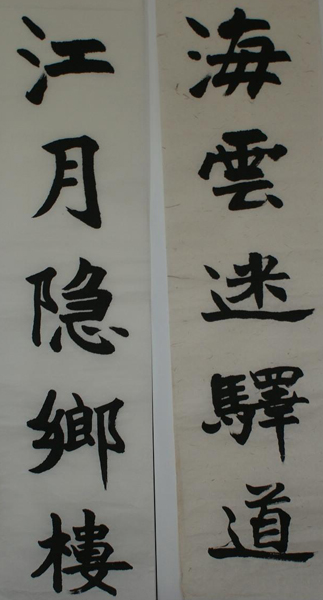 海雲迷驛道
江月隐鄉樓